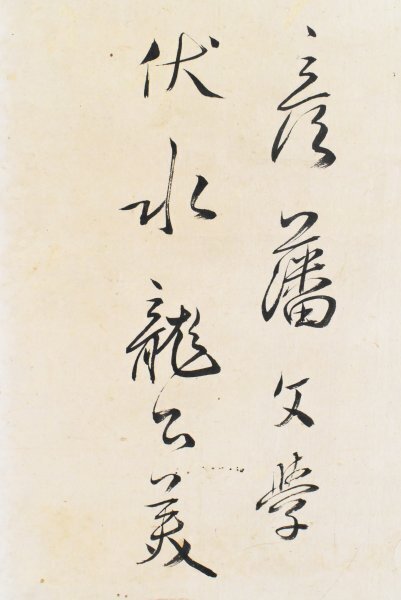 彦藩文学
伏水龍公美